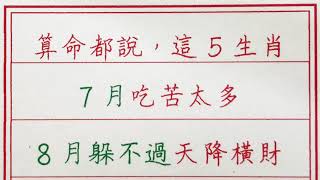 算命都說，這5生肖
7月吃苦太多
8月躲不過天降橫財